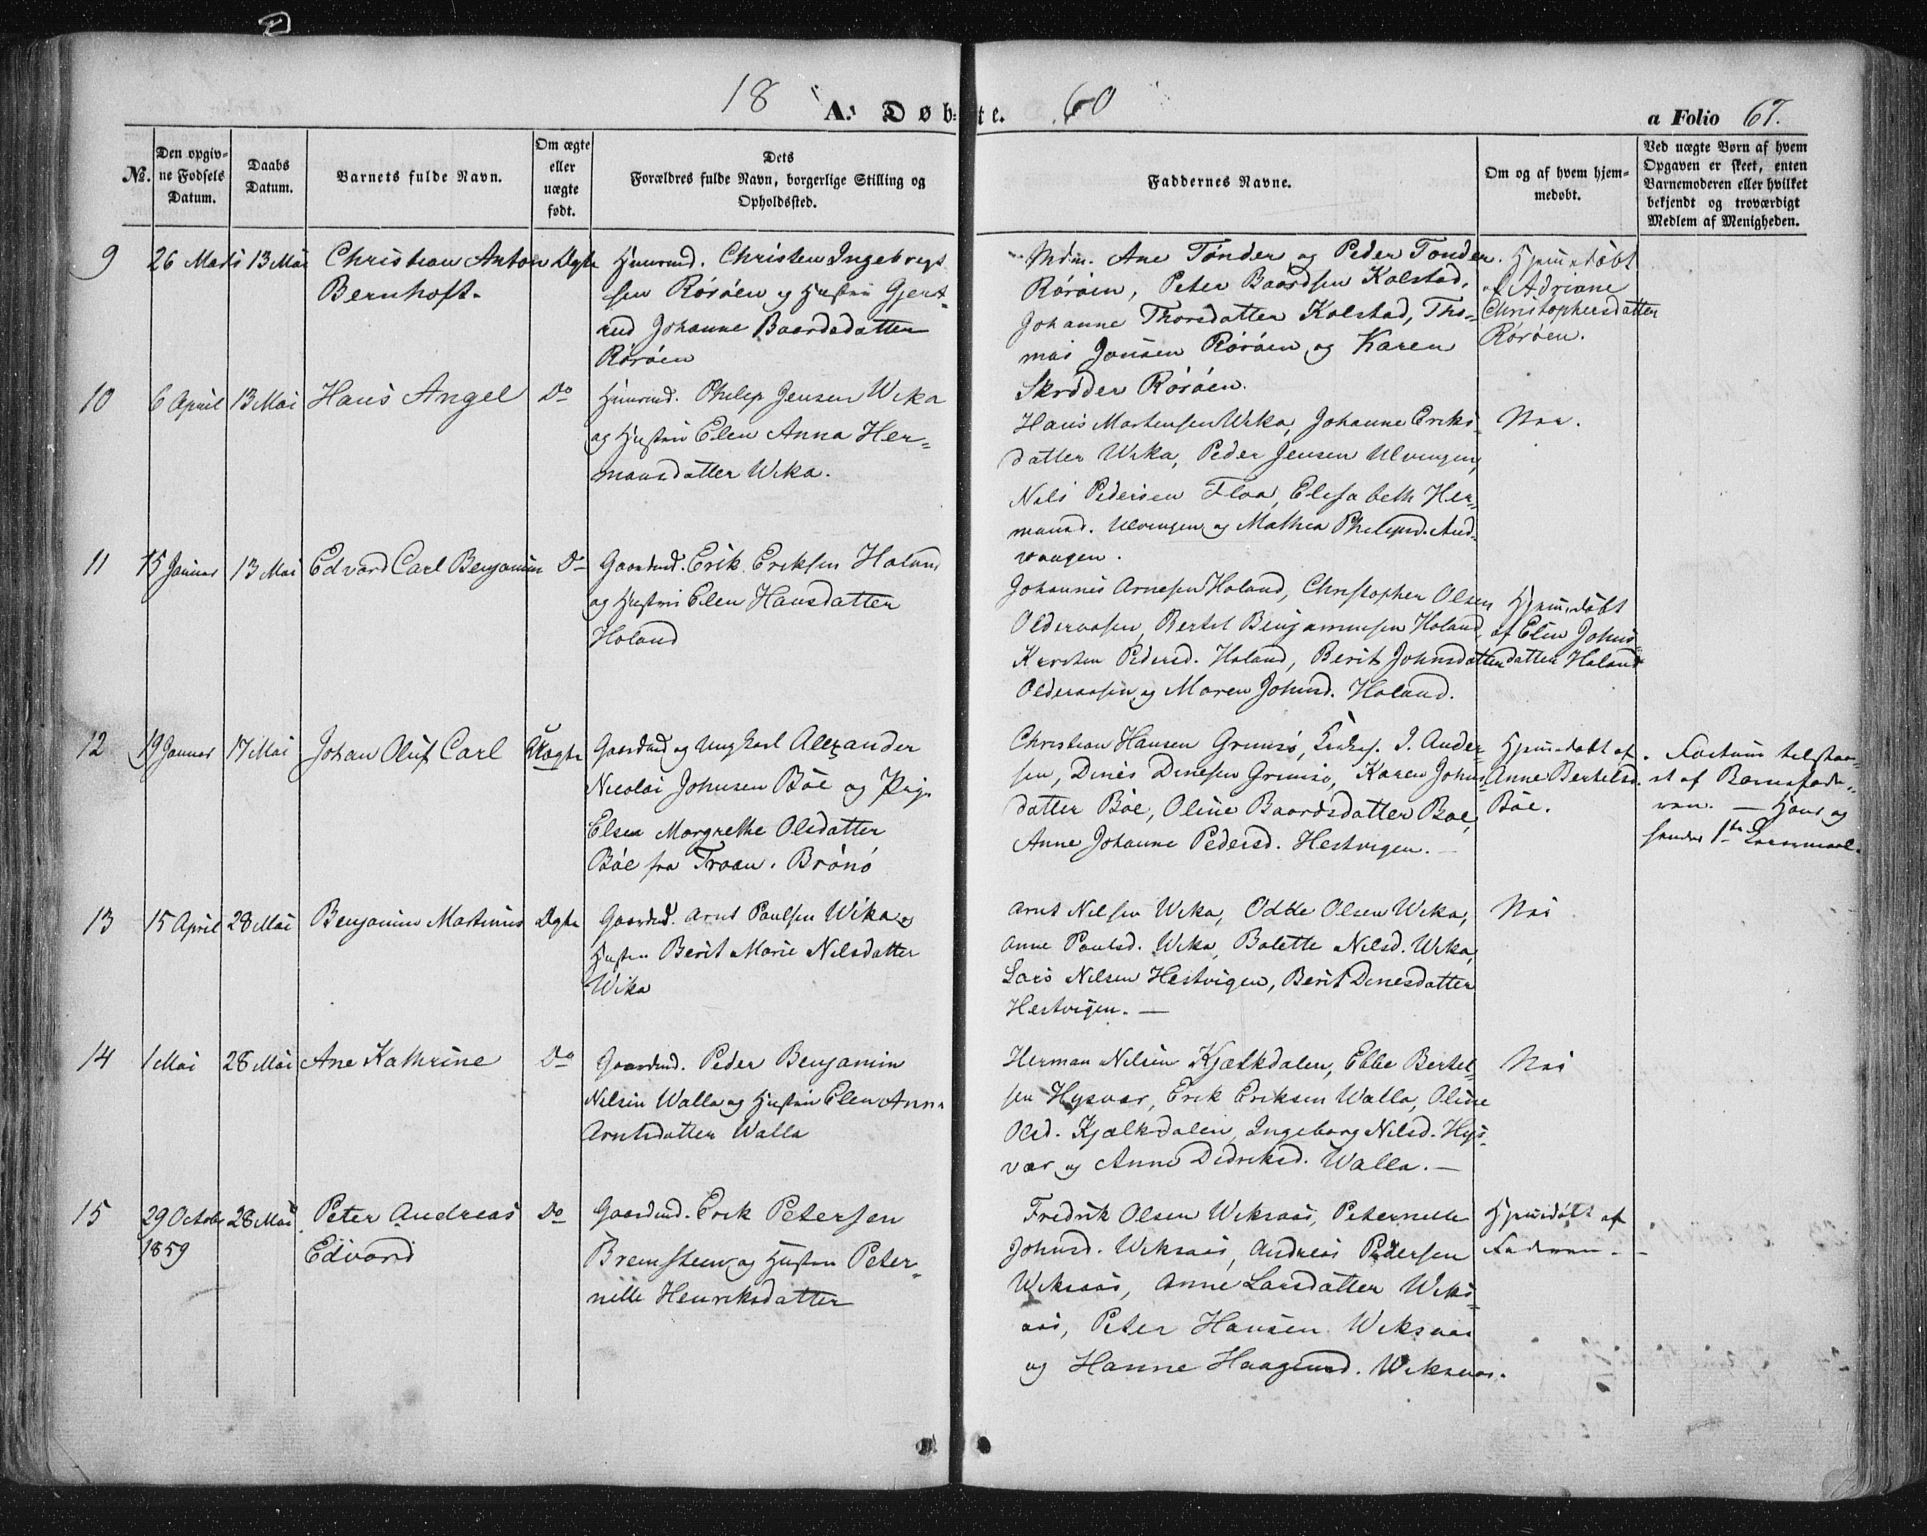 18 A. Døbte. 60
a Folio 67.
№.
Den opgivne Fødsels Datum.
Daabs Datum.
Barnets fulde Navn.
Om ægte eller uægte født.
Dets Forældres fulde Navn, borgerlige Stilling og Opholdssted.
Faddernes Navne.
Om og af hvem hjemmedøbt.
Ved uægte Børn af hvem Opgaven er skeet, enten Barnemoderen eller hvilket bekjendt og troværdigt Medlem af Menigheden.
9 26 Marts 13 Mai Christian Anton Ægte Christen Ingebrigt
Bernhoft. sen Röröen og Hustru Gjert
rud Johanne Baardsdatter
Röröen
Mdm. Ane Tönder og Peder Tönder
Röröen, Peter Baardsen Kolstad,
Johanne Thorsdatter Kolstad, Tho-
mas Jonsen Röröen og Karen
Skröder Röröen.
Hjemmedöbt
af Adriane
Christophersdatter
Röröen.
10 6 April 13 Mai Hans Angel Do Philip Jensen Wika
og Hustru Elen Anna Her-
mansdatter Wika.
Hans Mortensen Wika, Johanne Eriks-
datter Wika, Peder Jensen Ulvingen,
Nils Pedersen Floa, Elisabeth Her-
mansd. Ulvingen og Mathea Philipsd. And-
vaagen.
Nei.
11 15 Januar 13 Mai Edvard Carl Benjamin Do Gaardmd. Erik Eriksen Holand
og Hustru Elen Hansdatter
Holand
Johannes Arnesen Holand, Christopher Olsen
Olderaasen, Bertel Benjaminsen Holand,
Kirsten Pedersd. Holand, Berit Johnsdatter
Olderaasen og Maren Johnsd. Holand.
Hjemmedöbt
af Elen Johns
datter Holand
12 19 Januar 17 Mai Johan Oluf Carl Uægte Gaardmd og Ungkarl Alexander
Nicolai Johnsen Böe og Pige
Elsen Margrethe Olsdatter
Böe fra Troan. Brönö
Christian Hansen Grimsö, J. Ander-
sen, Dines Dinesen Grimsö, Karen Johns
datter Böe, Oline Baardsdatter Böe,
Anne Johanne Pedersd. Hestvigen.
Hjemmedöbt af
Anne Bertelsd.
Böe.
Factum tilstaa-
et af Barnefade-
ren. — Hans og
hendes 1ste Leiermaal.
13 15 April 28 Mai Benjamin Martinus Ægte Gaardmd. Arnt Paulsen Wika og
Hustru Berit Marie Nilsdatter
Wika
Arnt Nilsen Wika, Odde Olsen Wika,
Anne Paulsd. Wika, Bolette Nilsd. Wika,
Lars Nilsen Hestvigen, Berit Dinesdatter
Hestvigen. —
Nei
14 1 Mai 28 Mai Ane Kathrine Do Gaardmd. Peder Benjamin
Nilsen Walla og Hustru Elen Anna
Arntsdatter Walla
Herman Nilsen Kjælkdalen, Ebbe Bertel-
sen Hysvær, Erik Eriksen Walla, Oline
Olsd. Kjælkdalen, Ingeborg Nilsd. Hys-
vær og Anne Didriksd. Walla. —
Nei
15 29 October 28 Mai Peter Andreas Do Gaardmd. Erik Petersen
1859 Edvard Bremsteen og Hustru Peter-
nille Henriksdatter
Fredrik Olsen Wiksaas, Peternille
Johnsd. Wiksaas, Andreas Pedersen
Wiksaas, Anne Larsdatter Wiks-
aas, Peter Hansen Wiksaas
og Hanne Haagensd. Wiksaas.
Hjemmedöbt af
Faderen. —